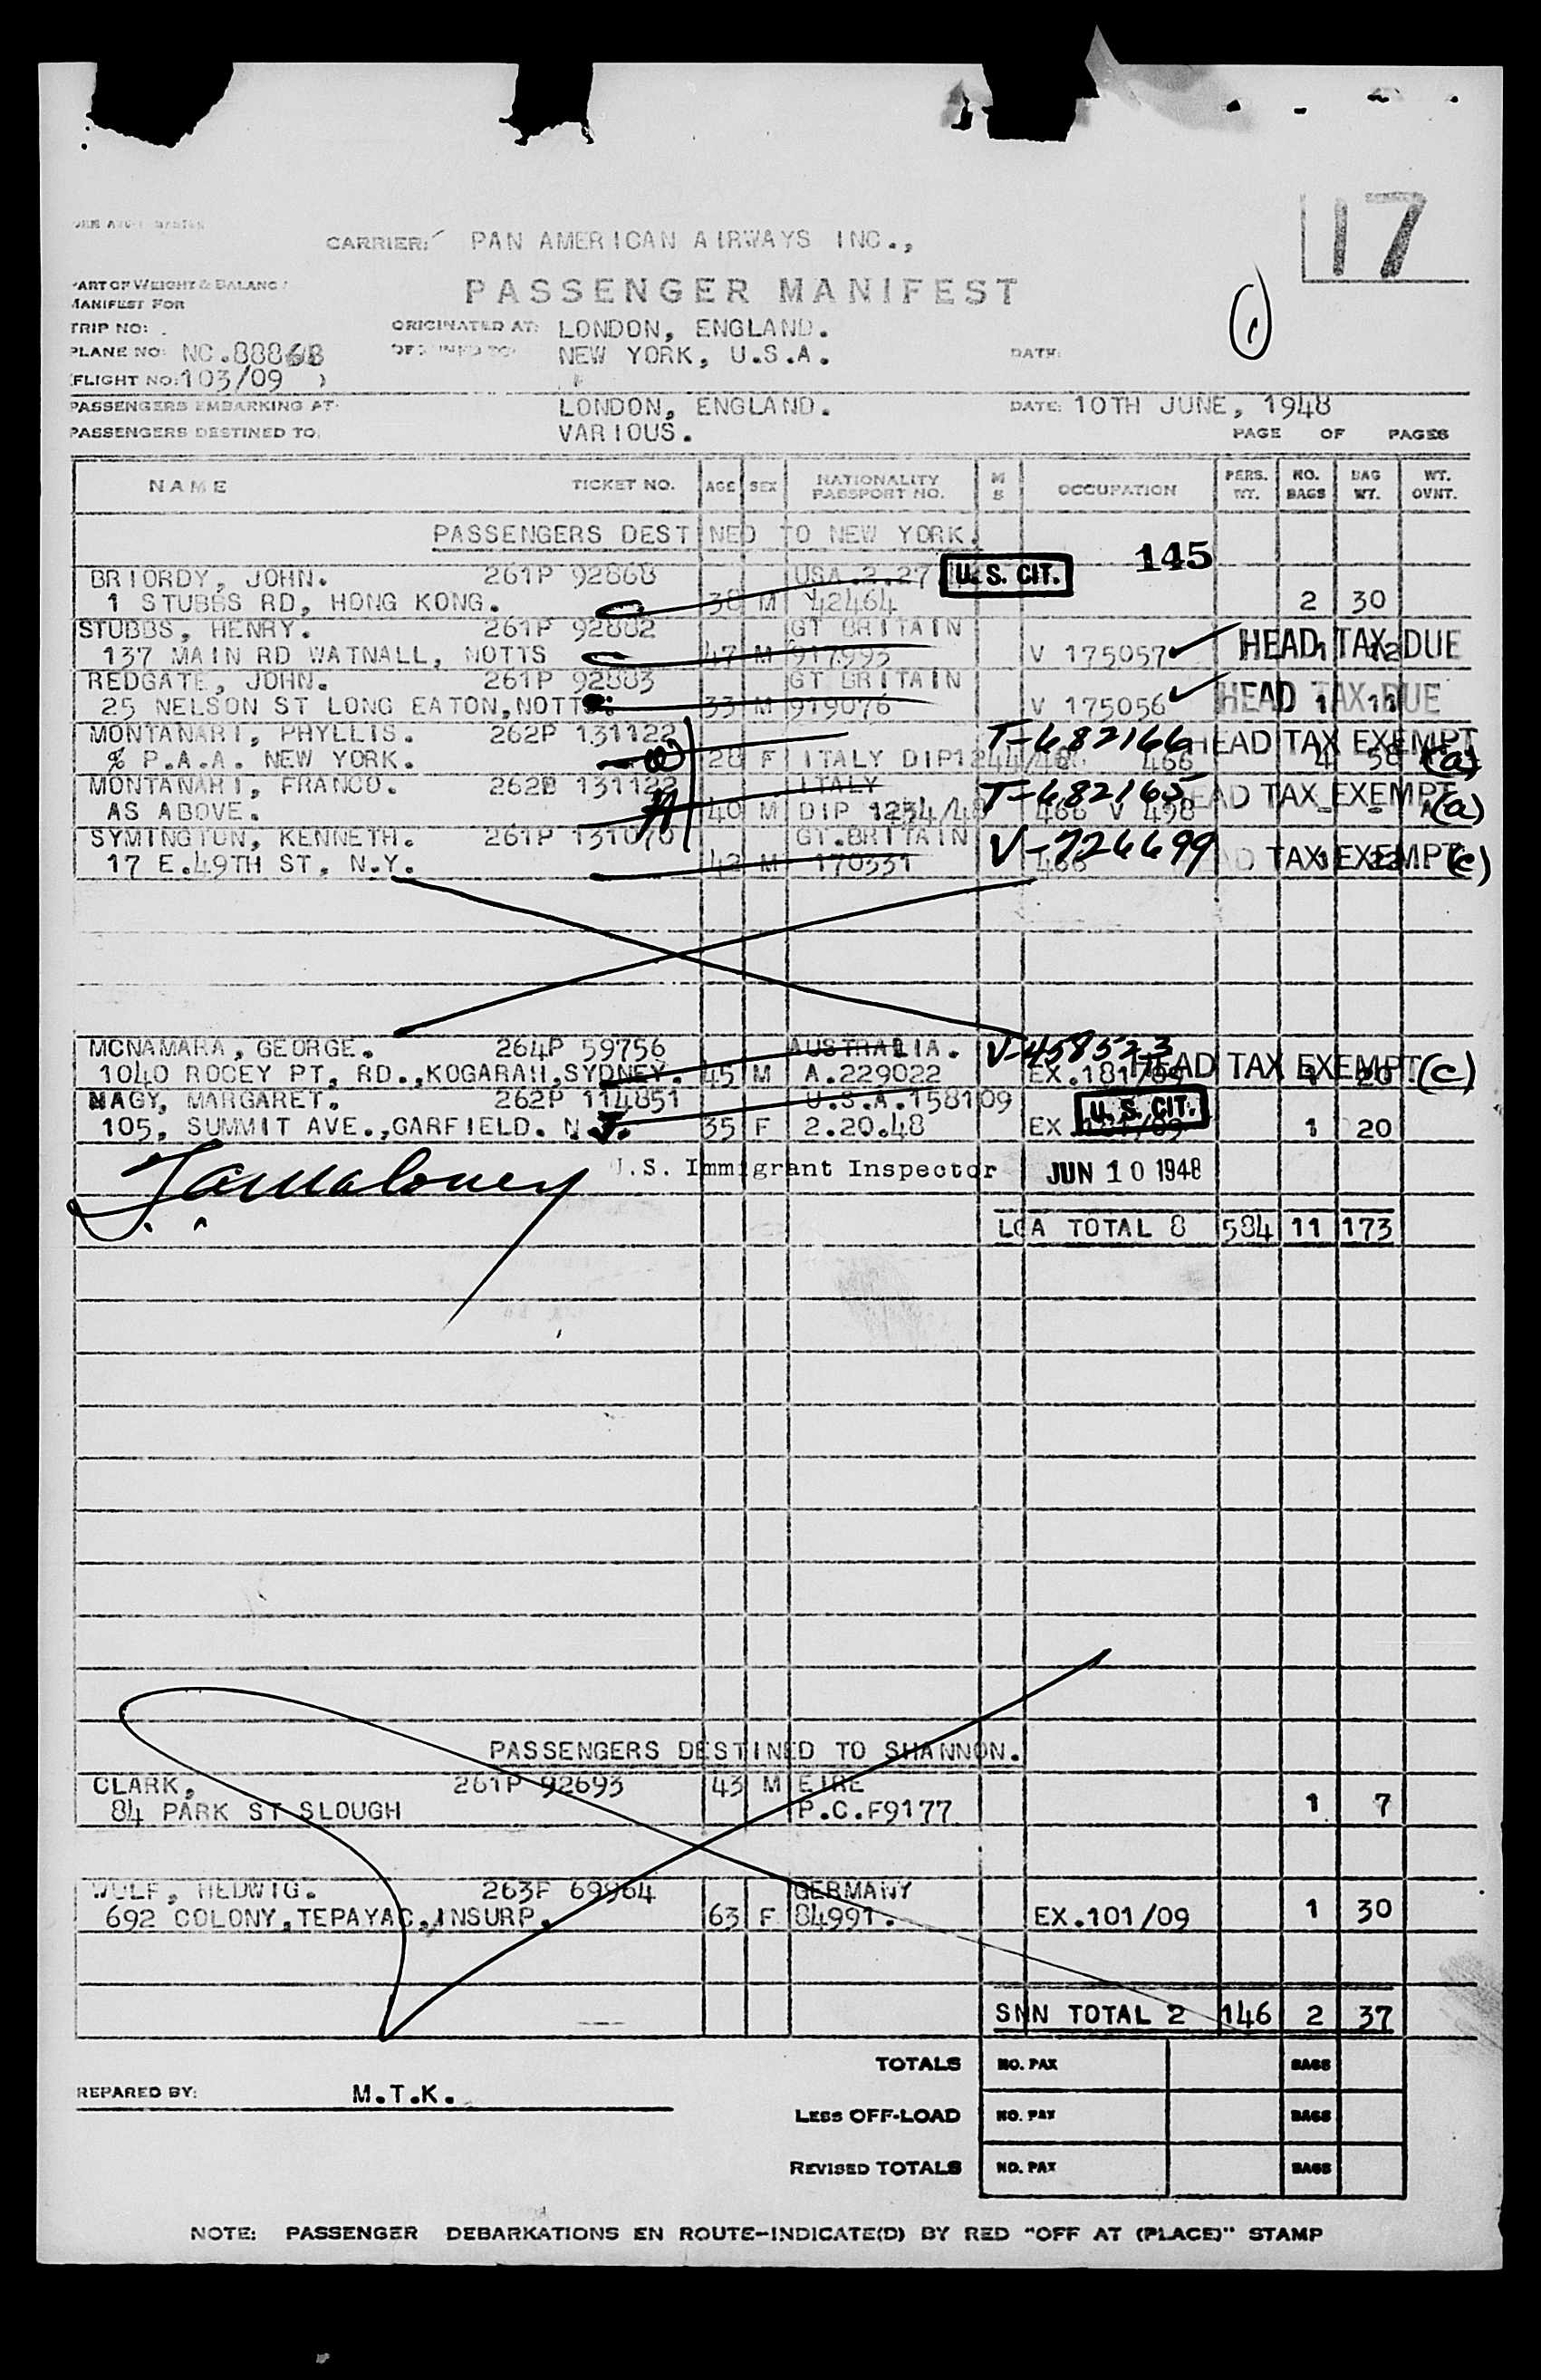 17
CARRIER: PAN AMERICAN AIRWAYS INC.,
PART OF WEIGHT & BALANC
MANIFEST FOR
PASSENGER MANIFEST
TRIP NO:
ORIGINATED AT: LONDON, ENGLAND.
PLANE NO: NC.88868
NEW YORK, U.S.A.
DATE:
(FLIGHT NO: 103/09 )
PASSENGERS EMBARKING AT: LONDON, ENGLAND. DATE: 10TH JUNE, 1948
PASSENGERS DESTINED TO: VARIOUS. PAGE OF PAGES
NAME TICKET NO. AGE SEX NATIONALITY PASSPORT NO. M S OCCUPATION PERS. WT. NO. BAGS BAG WT. WT. OVNT.
PASSENGERS DESTINED TO NEW YORK.
145
BRIORDY, JOHN. 261P 92868 USA.2.27 U.S. CIT.
1 STUBBS RD, HONG KONG. 38 M 42464 2 30
STUBBS, HENRY. 261P 92882 GT BRITAIN HEAD TAX DUE
137 MAIN RD WATNALL, NOTTS 47 M 917993 V 175057 1
REDGATE, JOHN. 261P 92883 GT BRITAIN HEAD TAX DUE
25 NELSON ST LONG EATON, NOTTS. 33 M 919076 V 175056 1 16
MONTANARI, PHYLLIS. 262P 131122 T-682166 HEAD TAX EXEMPT
% P.A.A. NEW YORK. 28 F ITALY DIP1244/48 466 4 58 (a)
MONTANARI, FRANCO. 262P 131122 ITALY T-682165 HEAD TAX EXEMPT
AS ABOVE. 40 M DIP 1234/48 466 V 498 - - (a)
SYMINGTON, KENNETH. 261P 131070 GT.BRITAIN V-726699 HEAD TAX EXEMPT (c)
17 E.49TH ST, N.Y. 42 M 170331 466 1 22
MCNAMARA, GEORGE. 264P 59756 AUSTRALIA. V-458523 HEAD TAX EXEMPT (c)
1040 ROCEY PT, RD.,KOGARAH,SYDNEY. 45 M A.229022 EX.181/09 1 20
NAGY, MARGARET. 262P 114851 U.S.A.158109 U.S. CIT.
105, SUMMIT AVE.,GARFIELD. N.J. 35 F 2.20.48 EX 1 20
U.S. Immigrant Inspector JUN 10 1948
LGA TOTAL 8 584 11 173
PASSENGERS DESTINED TO SHANNON.
CLARK, 261P 92693 43 M EIRE
84 PARK ST SLOUGH P.C.F9177 1 7
WULF, HEDWIG. 263P 69964 GERMANY
692 COLONY,TEPAYAC,INSURP. 63 F 84991. EX.101/09 1 30
SNN TOTAL 2 146 2 37
TOTALS NO. PAX BAGS
REPARED BY: M.T.K.
LESS OFF-LOAD NO. PAX BAGS
REVISED TOTALS NO. PAX BAGS
NOTE: PASSENGER DEBARKATIONS EN ROUTE-INDICATE(D) BY RED "OFF AT (PLACE)" STAMP